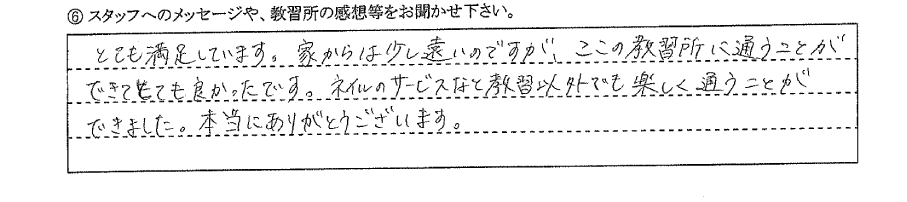 ⑥ スタッフへのメッセージや、教習所の感想等をお聞かせ下さい。
とても満足しています。家からは少し遠いのですが、ここの教習所に通うことが
できてとても良かったです。ネイルのサービスなど教習以外でも楽しく通うことが
できました。本当にありがとうございます。